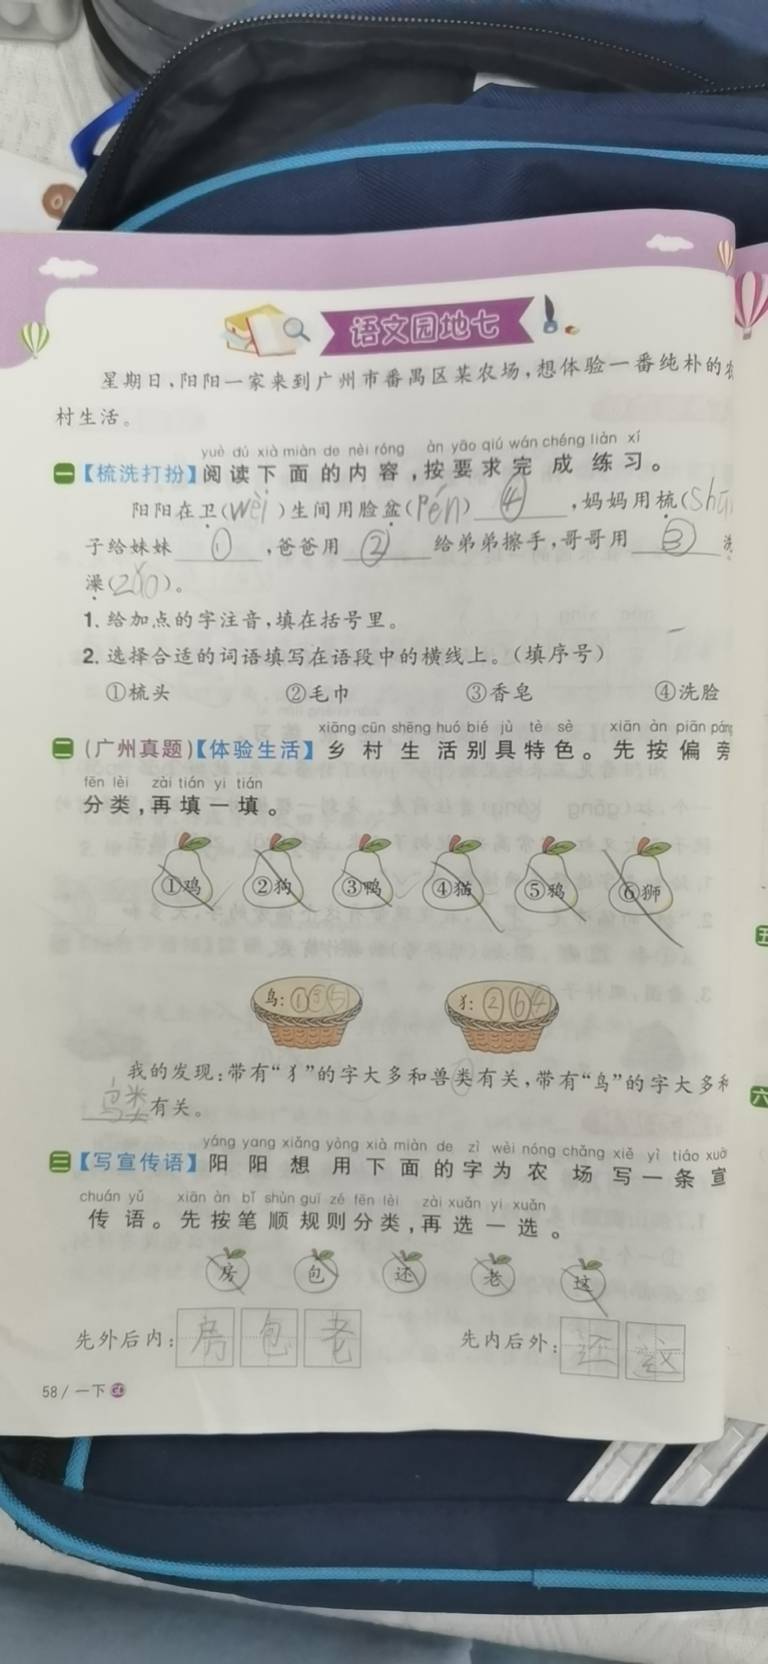 语文园地七
星期日,阳阳一家来到广州市番禺区某农场,想体验一番纯朴的农
村生活。
yuè dú xià miàn de nèi róng àn yāo qiú wán chéng liàn xí
一【梳洗打扮】阅读下面的内容,按要求完成练习。
阳阳在卫(wèi)生间用脸盆(Pén)④,妈妈用梳(shū
子给妹妹①,爸爸用②给弟弟擦手,哥哥用③洗
澡(zǎo)。
1. 给加点的字注音,填在括号里。
2. 选择合适的词语填写在语段中的横线上。(填序号)
①梳头 ②毛巾 ③香皂 ④洗脸
xiāng cūn shēng huó bié jù tè sè xiān àn piān páng
二(广州真题)【体验生活】乡村生活别具特色。先按偏旁
fēn lèi zài tián yi tián
分类,再填一填。
①鸡 ②狗 ③鸭 ④猫 ⑤鸦 ⑥狮
鸟:①③⑤ 犭:②⑥④
我的发现:带有“犭”的字大多和兽类有关,带有“鸟”的字大多和
鸟类有关。
yáng yang xiǎng yòng xià miàn de zì wèi nóng chǎng xiě yì tiáo xuān
三【写宣传语】阳阳想用下面的字为农场写一条宣
chuán yǔ xiān àn bǐ shùn guī zé fēn lèi zài xuǎn yi xuǎn
传语。先按笔顺规则分类,再选一选。
房 包 还 老 这
先外后内:房包老 先内后外:还这
58/一下
五
六